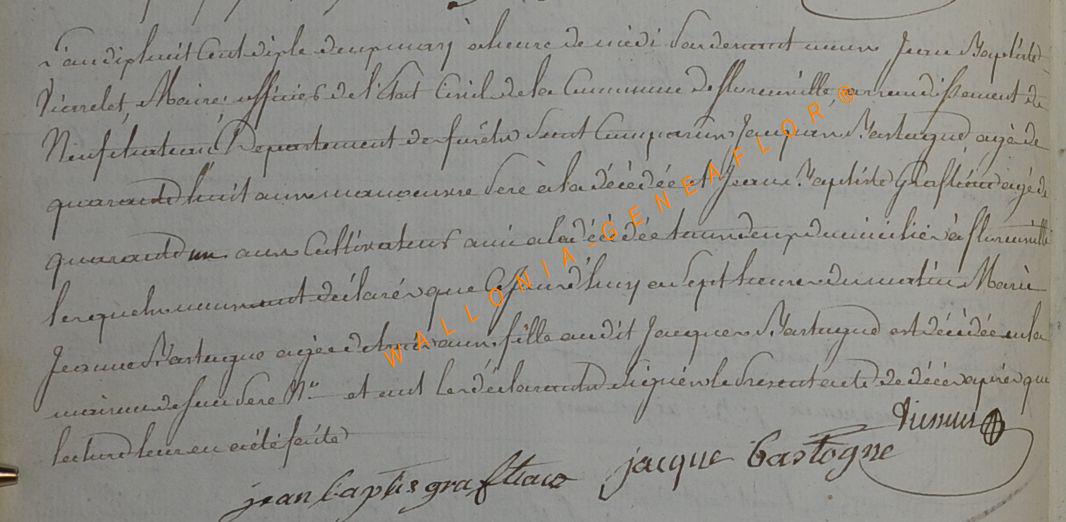 L'an dix huit cent dix le deux mars à heure de midi Pardevant nous Jean Baptiste
Maire officier de l'Etat Civil de la Commune de florenville arrondissement de
Neufchateau Département de forêts Sont Comparus Jacques Bastogne agé de
quarante huit ans manoeuvre Père à la décédée et Jean Baptiste Graftiaux agé de
quarante un ans Cultivateur ami a la décédée tous deux domiciliés à florenville
lesquels nous ont déclarés que Ce jourd'huy en Sept heure du matin Marie
Jeanne Bastogne agée de trois ans fille audit Jacques Bastogne est décédée en la
maison de Son Père Nº et ont les déclarants Signés le Présent acte de décés après que
lecture leur en a été faite
jean baptis graftiaux jacque Bastogne
WALLONIA-GENEAFLOR®